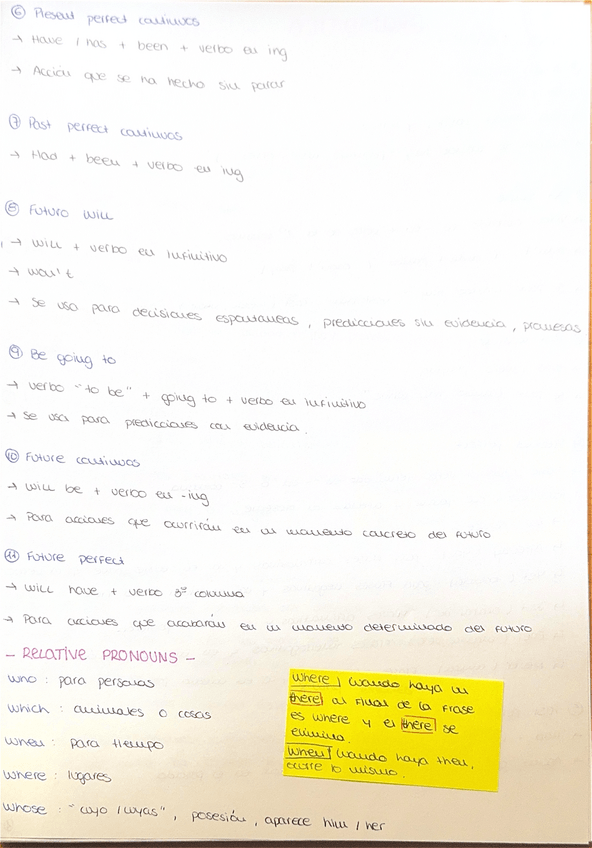 ⑥ Present perfect continuos
→ Have / has + been + verbo en ing
→ Acción que se ha hecho sin parar
⑦ Past perfect continuos
→ Had + been + verbo en ing
⑧ Futuro will
→ will + verbo en infinitivo
→ won't
→ Se usa para decisiones espontaneas, predicciones sin evidencia, promesas
⑨ Be going to
→ verbo "to be" + going to + verbo en infinitivo
→ Se usa para predicciones con evidencia.
⑩ Future continuos
→ will be + verbo en -ing
→ Para acciones que ocurrirán en un momento concreto del futuro
⑪ Future perfect
→ will have + verbo 3ª columna
→ Para acciones que acabarán en un momento determinado del futuro
- RELATIVE PRONOUNS -
who : para personas
which : animales o cosas
when : para tiempo
where : lugares
whose : "cuyo / cuyas", posesión, aparece him / her
where | cuando haya un
there al final de la frase
es where y el there se
elimina.
when | cuando haya then,
ocurre lo mismo.